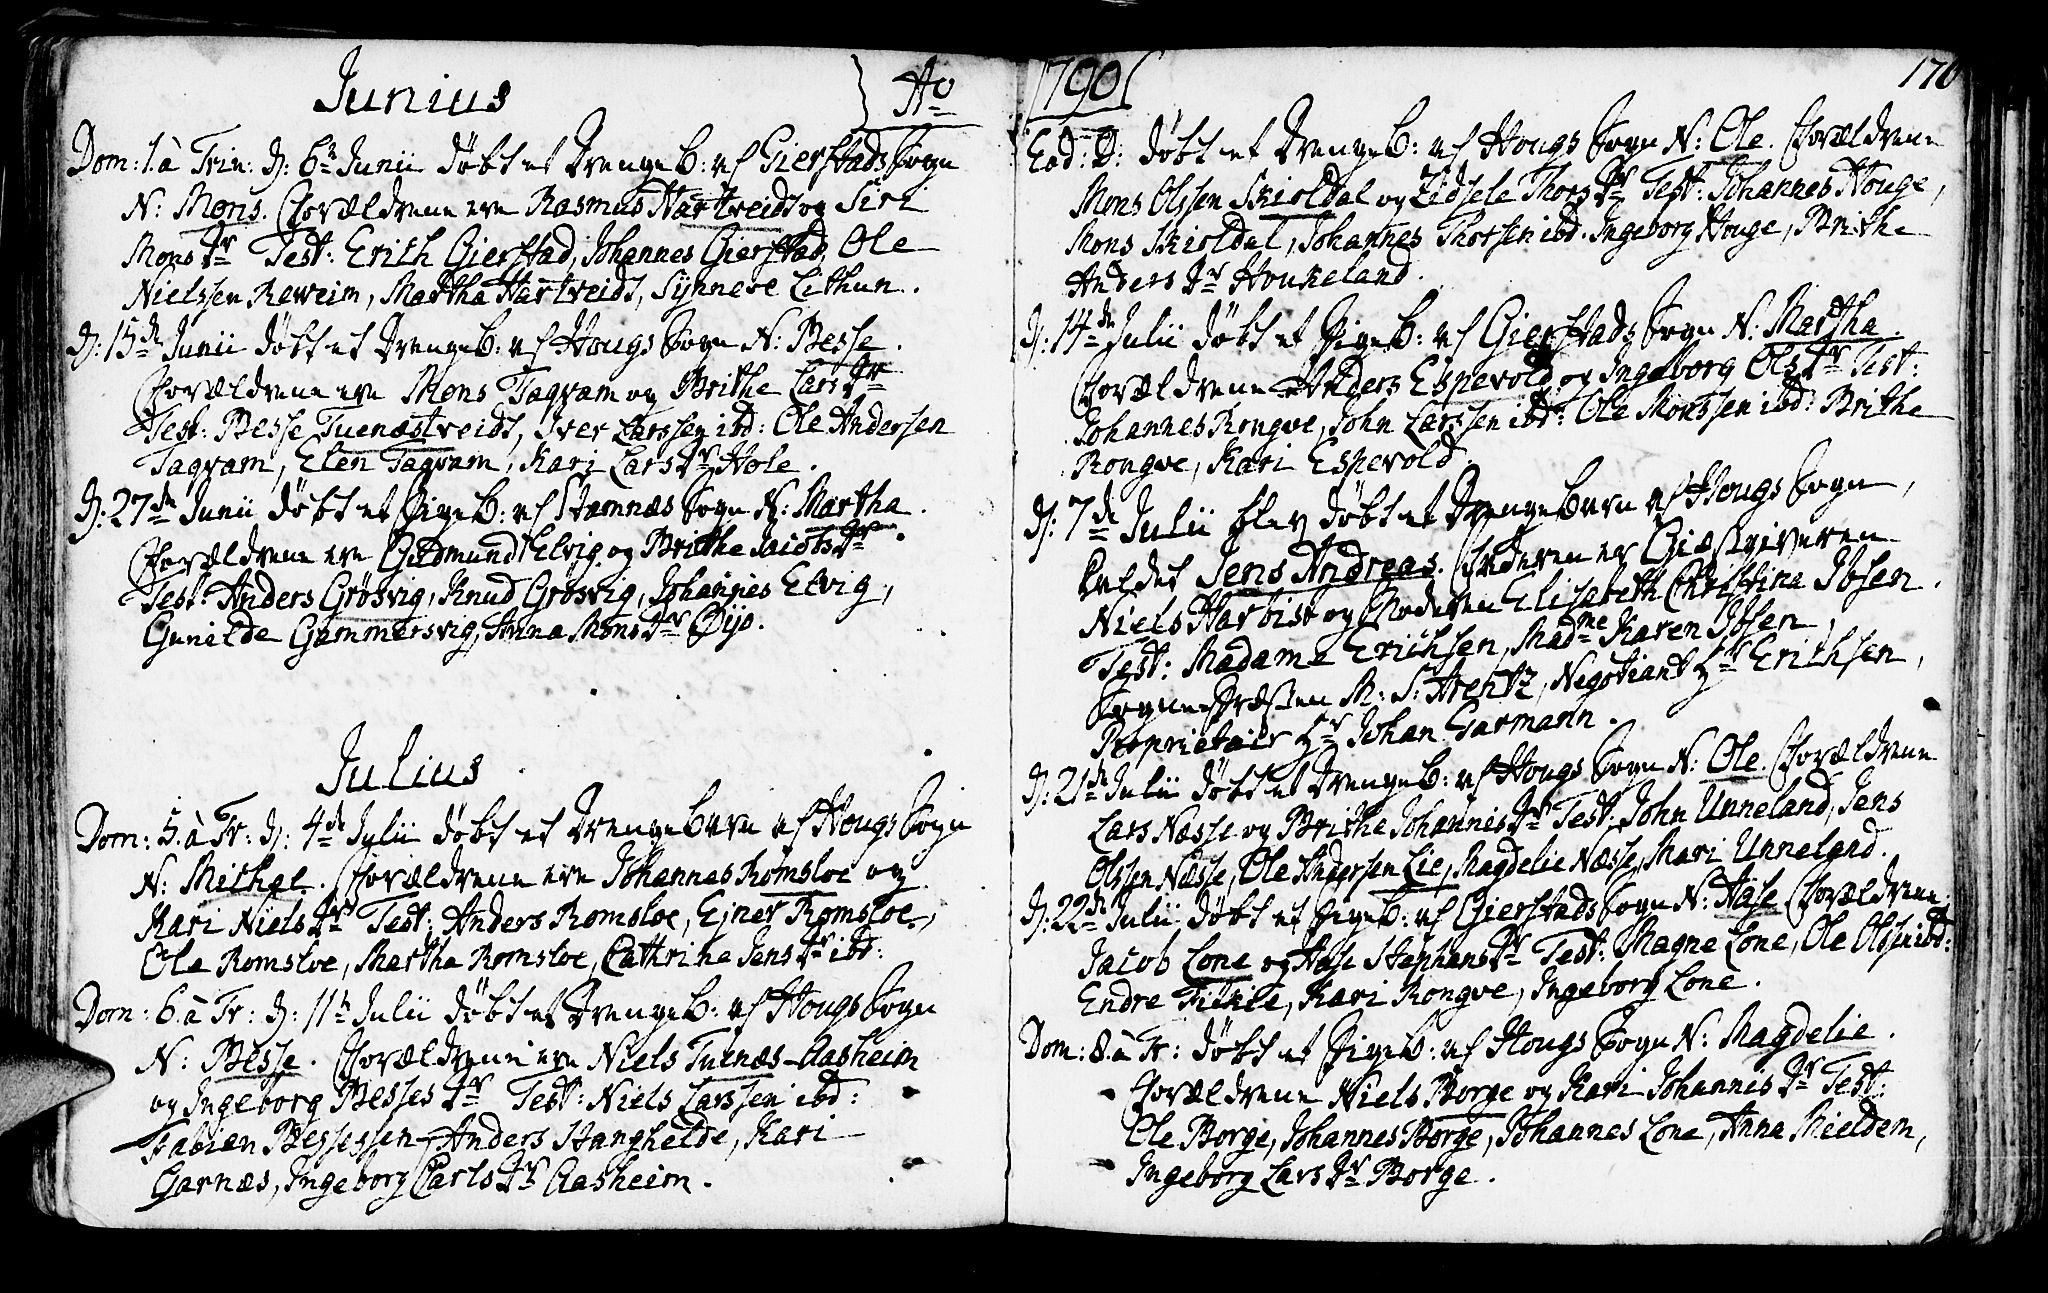 Junius } Ao
Dom: 1. à Trin: d: 6te Junii døbt et DrengeB: af Gierstads Sogn
N: Mons. Forældrene ere Rasmus Hartveidt og Siri
Mons Dr Test: Erith Gierstad, Johannes Gierstad, Ole
Nielssen Reweim, Martha Hartveidt, Synneve Lithun.
d: 15de Junii døbt et DrengeB: af Hougs Sogn N: Besse.
Forældrene ere Mons Taqvam og Brithe Lars Dr
Test: Besse Tuenæstveidt, Iver Larssen ibd: Ole Andersen
Taqvam, Elen Taqvam, Kari Lars Dr Hole.
d: 27de Junii døbt et PigeB: af Stamnæs Sogn N: Martha.
Forældrene ere Gudmund Elvig og Brithe Jacobs Dr.
Test: Anders Grøsvig, Knud Grøsvig, Johannes Elvig,
Gunilde Gammersvig, Anna Mons Dr Øijo.
Julius
Dom: 5. à Tr: d: 4de Julii døbt et DrengeBarn af Hougs Sogn
N: Mithel. Forældrene ere Johannes Romsloe og
Kari Niels Dr Test: Anders Romsloe, Ejner Romsloe,
Ole Romsloe, Martha Romsloe, Cathrine Jens Dr ibd:
Dom: 6. à Tr: d: 11te Julii døbt et DrengeB: af Hougs Sogn
N: Besse. Forældrene ere Niels Tuenæs-Aasheim
og Ingeborg Besses Dr Test: Niels Larssen ibd:
Fabian Bessessen, Anders Hanghelde, Kari
Garnæs, Ingeborg Carls Dr Aasheim.
1790 176
Eod: D: døbt et DrengeB: af Hougs Sogn N: Ole. Forældrene
Mons Olssen Skioldal og Zidsele Thors Dr Test: Johannes Houge,
Mons Skioldal, Johannes Thorsen ibd. Ingeborg Houge, Brithe
Anders Dr Houkeland.
d: 14de Julii døbt et PigeB: af Gierstads Sogn N: Martha.
Forældrene Anders Espevold og Ingeborg Ols Dr Test:
Johannes Rongve, John Larssen ibd: Ole Monssen ibd: Brithe
Rongve, Kari Espevold.
d: 7de Julii blev døbt et DrengeBarn af Hougs Sogn,
kaldet Jens Andreas. Faderen er Giæstgiveren
Niels Harbist og Moderen Elisabeth Christina Ibsen.
Test: Madame Erichsen, Madme Karen Ibsen,
SognePræsten M: S: Arentz, Negotiant Hr Erichsen,
Proprietair Hr Johan Garmann.
d: 21de Julii døbt et DrengeB: af Hougs Sogn N: Ole Forældrene
Lars Næsse og Brithe Johannis Dr Test: John Unneland, Jens
Olssen Næsse, Ole Andersen Lie, Magdelie Næsse, Mari Unneland.
d: 22de Julii døbt et PigeB: af Gierstads Sogn N: Aase Forældrene
Jacob Lone og Aase Stephans Dr Test: Magne Lone, Ole Olssen ibd:
Endre Titlile, Kari Rongve, Ingeborg Lone.
Dom: 8 à Tr: døbt et PigeB: af Hougs Sogn N: Magdelie.
Forældrene Niels Borge og Kari Johannis Dr Test:
Ole Borge, Johannes Borge, Johannes Lone, Anna Mieldem,
Ingeborg Lars Dr Borge.